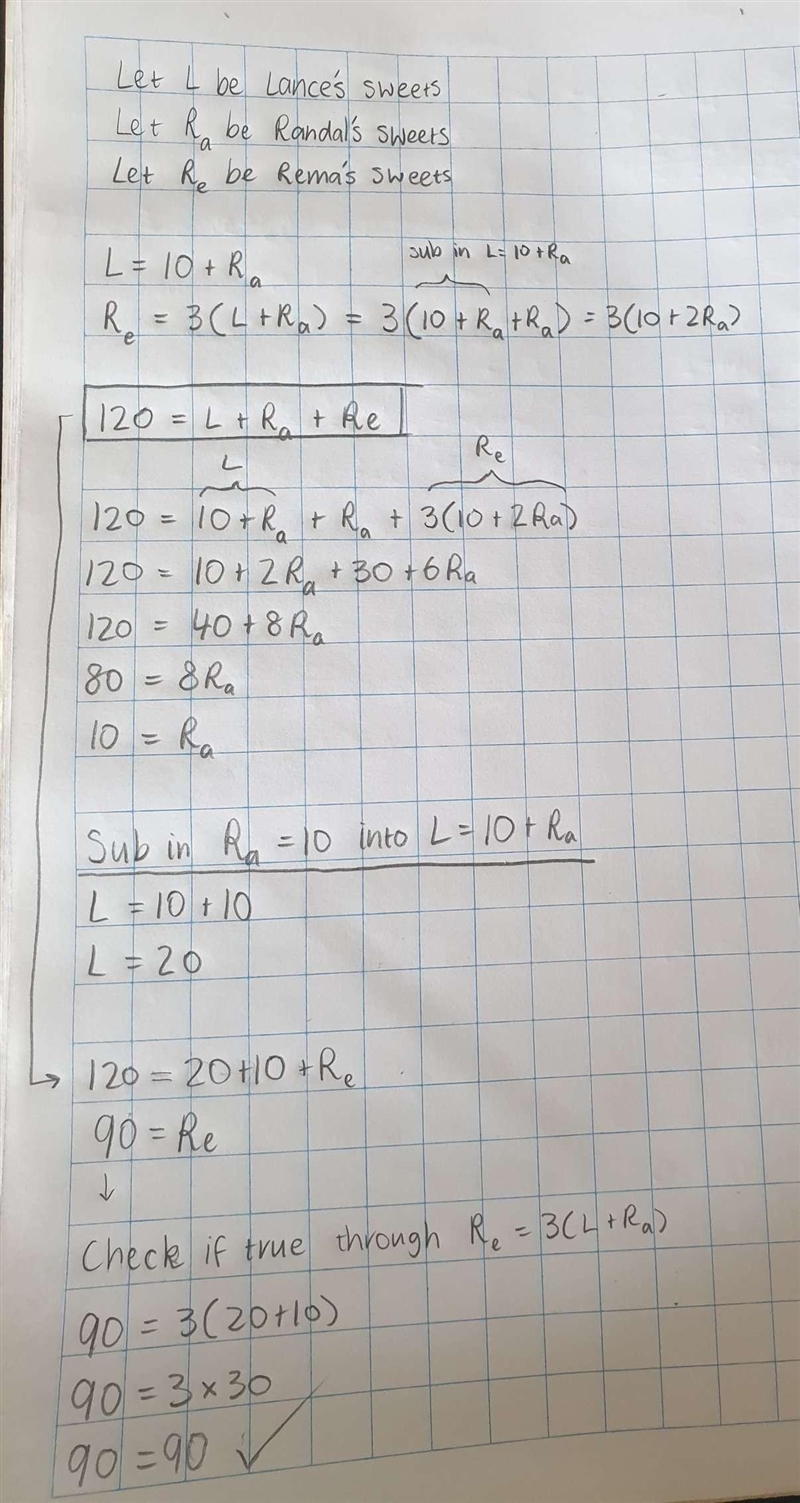 Let L be Lance's sweets
Let Ra be Randal's sweets
Let Re be Rema's sweets
L = 10 + Ra
sub in L = 10 + Ra
Re = 3(L + Ra) = 3(10 + Ra + Ra) = 3(10 + 2Ra)
120 = L + Ra + Re
L Re
120 = 10 + Ra + Ra + 3(10 + 2Ra)
120 = 10 + 2Ra + 30 + 6Ra
120 = 40 + 8Ra
80 = 8Ra
10 = Ra
Sub in Ra = 10 into L = 10 + Ra
L = 10 + 10
L = 20
→ 120 = 20 + 10 + Re
90 = Re
↓
Check if true through Re = 3(L + Ra)
90 = 3(20 + 10)
90 = 3 × 30
90 = 90 ✓